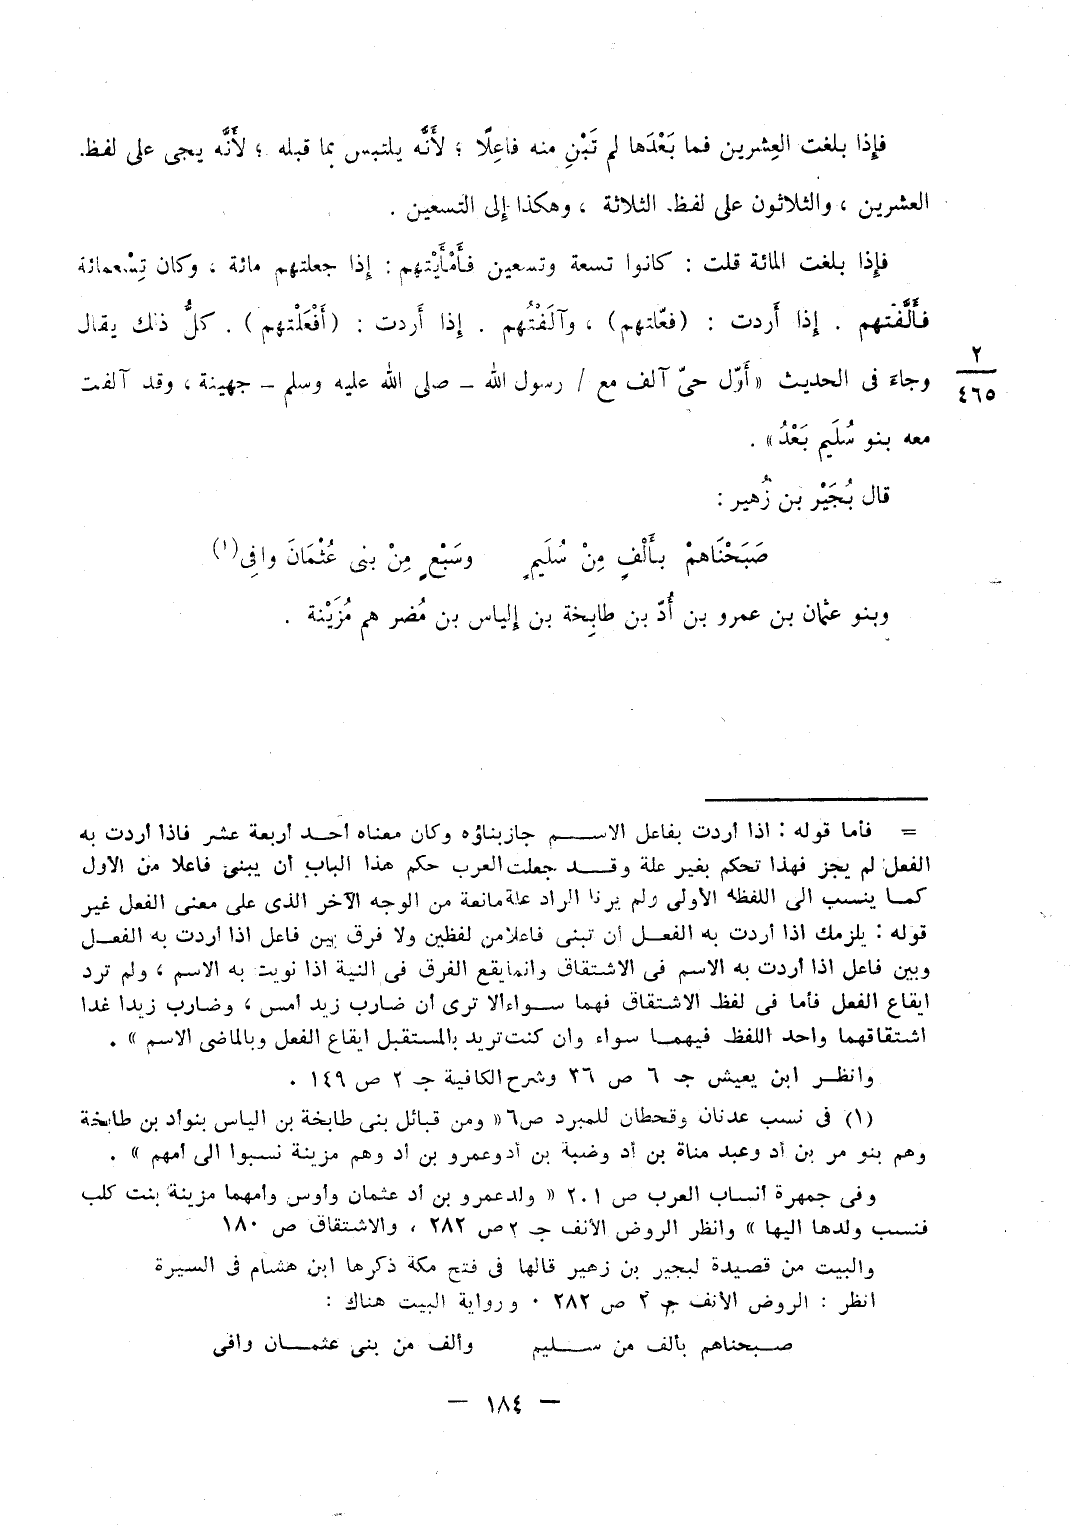 فإِذا بلغت العِشرين فما بَعْدَها لم تَبْنِ منه فاعِلًا ؛ لأَنَّه يلتبس بما قبله ؛ لأَنَّه يجى على لفظ.
العشرين ، والثلاثون على لفظ. الثلاثة ، وهكذا إِلى التسعين .
فإِذا بلغت المائة قلت : كانوا تسعة وتسعين فأَمْأَيْتهم : إِذا جعلتهم مائة ، وكان تِسْعمائة
فأَلَّفْتهم . إِذا أَردت : (فعّلتهم) ، وآلَفْتُهم . إِذا أَردت : (أَفْعَلْتهم) . كلُّ ذلك يقال
وجاءَ فى الحديث «أَوّل حىّ آلف مع / رسول الله – صلى الله عليه وسلم – جهينة ، وقد آلفت
٢
٤٦٥
معه بنو سُلَيم بَعْدُ» .
قال بُجَيْر بن زُهير :
صَبَحْنَاهمْ بأَلْفٍ مِنْ سُلَيمٍ وسَبْعٍ مِنْ بنى عُثْمَانَ وافِى(١)
وبنو عثمان بن عمرو بن أُدّ بن طابِخة بن إِلياس بن مُضر هم مُزَيْنة .
= فأما قوله : اذا أردت بفاعل الاسم جاز بناؤه وكان معناه أحد أربعة عشر فاذا أردت به
الفعل لم يجز فهذا تحكم بغير علة وقد جعلت العرب حكم هذا الباب أن يبنى فاعلا من الأول
كما ينسب الى اللفظه الأولى ولم يرنا الراد علة مانعة من الوجه الآخر الذى على معنى الفعل غير
قوله : يلزمك اذا أردت به الفعل أن تبنى فاعلا من لفظين ولا فرق بين فاعل اذا أردت به الفعل
وبين فاعل اذا أردت به الاسم فى الاشتقاق وانما يقع الفرق فى النية اذا نويت به الاسم ، ولم ترد
ايقاع الفعل فأما فى لفظ الاشتقاق فهما سواء ألا ترى أن ضارب زيد أمس ، وضارب زيدا غدا
اشتقاقهما واحد اللفظ فيهما سواء وان كنت تريد بالمستقبل ايقاع الفعل وبالماضى الاسم » .
وانظر ابن يعيش جـ ٦ ص ٣٦ وشرح الكافية جـ ٢ ص ١٤٩ .
(١) فى نسب عدنان وقحطان للمبرد ص٦ « ومن قبائل بنى طابخة بن الياس بنو أد بن طابخة
وهم بنو مر بن أد وعبد مناة بن أد وضبة بن أد وعمرو بن أد وهم مزينة نسبوا الى أمهم » .
وفى جمهرة أنساب العرب ص ٢٠١ « ولد عمرو بن أد عثمان وأوس وأمهما مزينة بنت كلب
فنسب ولدها اليها » وانظر الروض الأنف جـ ٢ ص ٢٨٢ ، والاشتقاق ص ١٨٠
والبيت من قصيدة لبجير بن زهير قالها فى فتح مكة ذكرها ابن هشام فى السيرة
انظر : الروض الأنف جـ ٢ ص ٢٨٢ . ورواية البيت هناك :
صبحناهم بألف من سليم وألف من بنى عثمان وافى
— ١٨٤ —